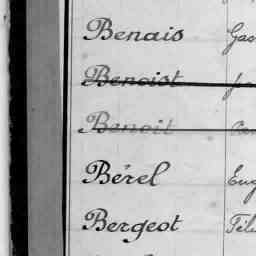 Benais Gas
Benoist
Benoit
Bérel Eug
Bergeot Féli